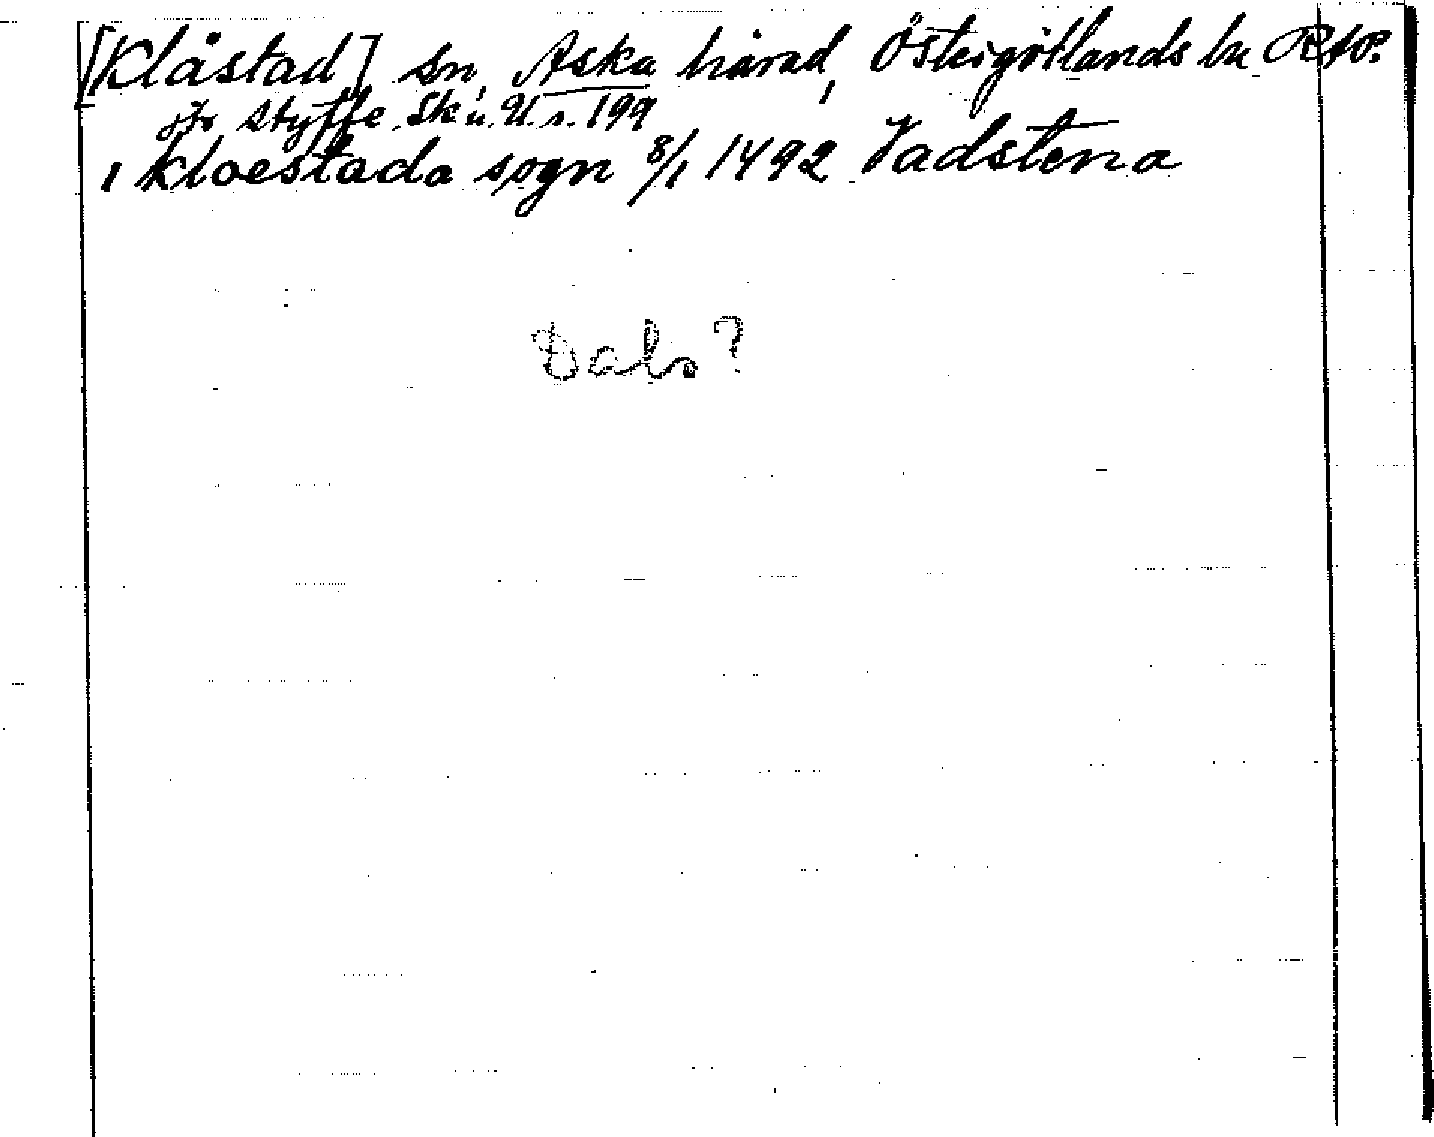 [Klåstad] sn, Aska härad, Östergötlands län RAP.
jfr Styffe Sk. u. U. s. 199
i kloestada sogn 8/1 1492 Vadstena
Dals?